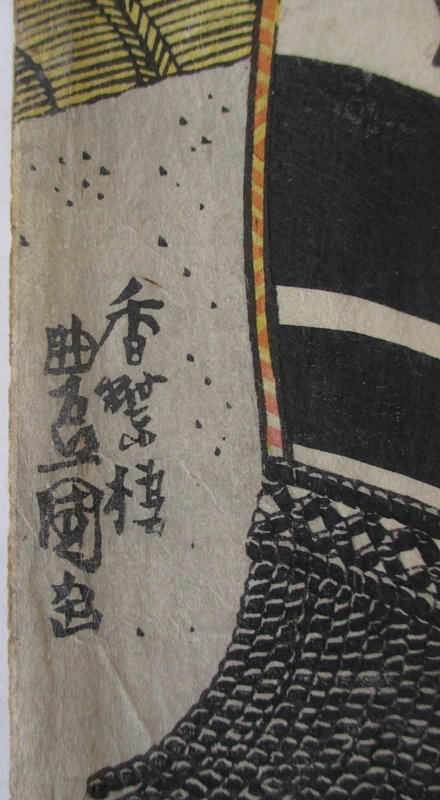 香蝶楼
豊國画